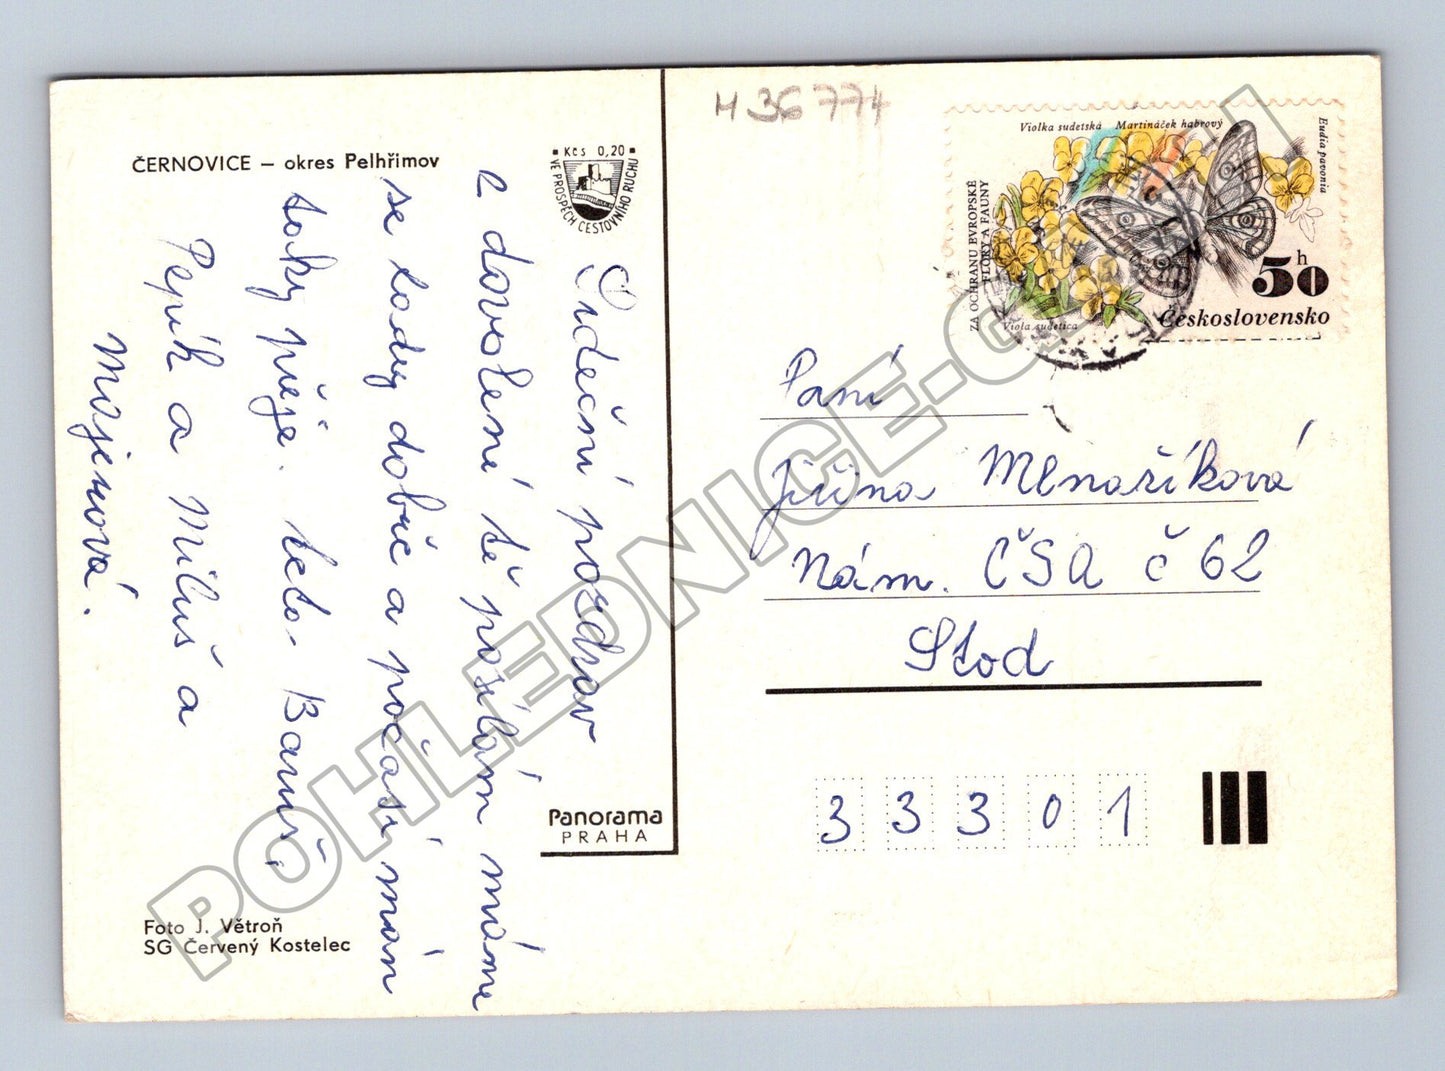 H 36 774
ČERNOVICE – okres Pelhřimov
Kčs 0,20
VE PROSPĚCH CESTOVNÍHO RUCHU
Srdeční pozdrav
z dovolené tě posílám máme
se tady dobře a počasí mám
taky přeje. teto- Baruš,
Pepík a Miluš a
Majerová.
Foto J. Větroň
SG Červený Kostelec
Panorama
PRAHA
Violka sudetská Martináček habrový
Eudia pavonia
ZA OCHRANU EVROPSKÉ
FLÓRY A FAUNY
Viola sudetica
50 h
Československo
Paní
Jiřina Mlnaříková
Nám. ČSA č 62
Stod
33301
POHLEDNICE.